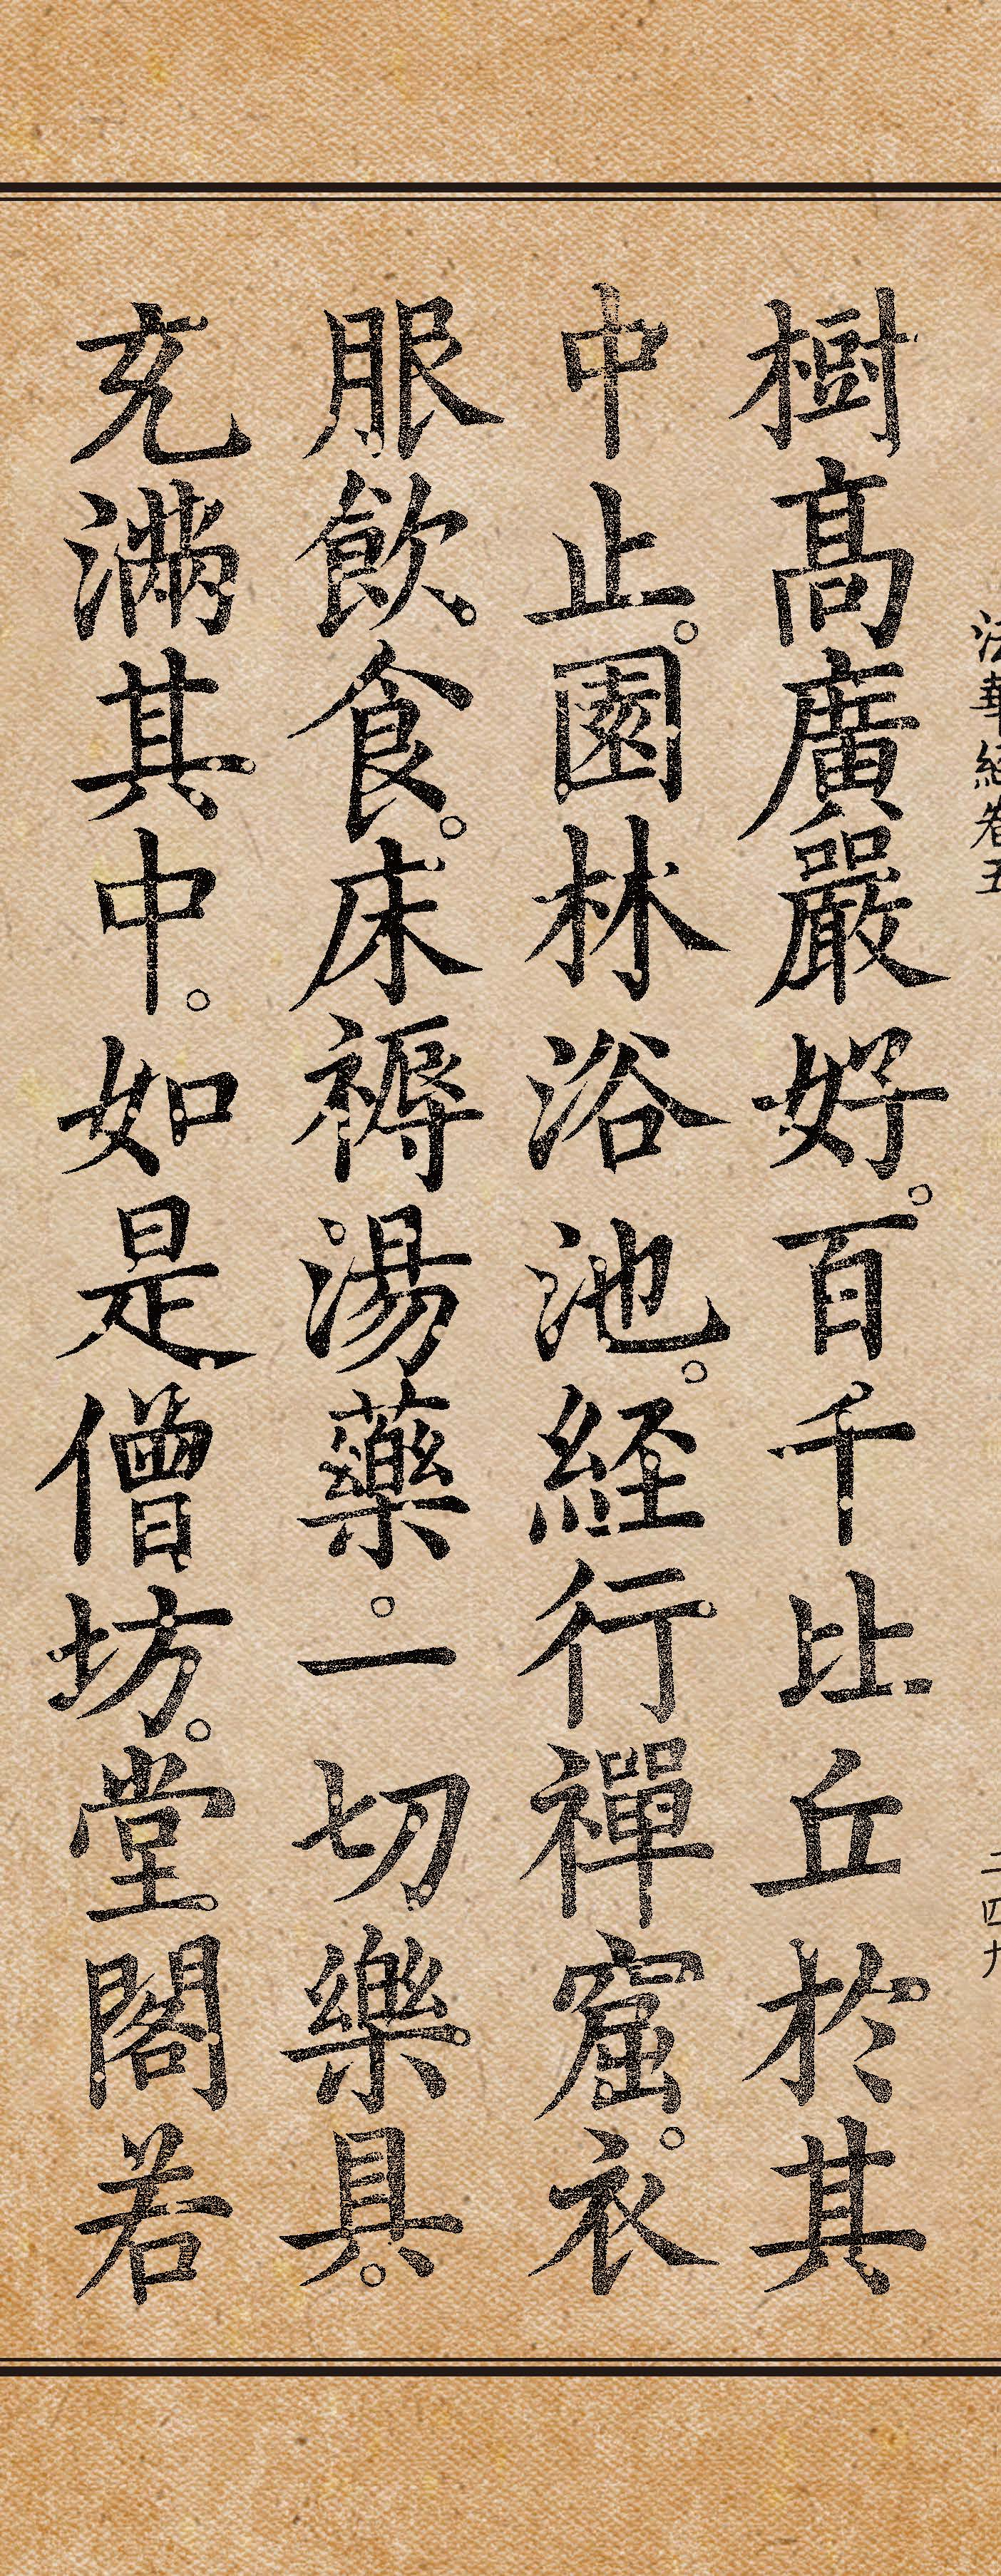 法華経巻五
二四九
樹高廣嚴好。百千比丘於其
中止。園林浴池。経行禪窟。衣
服飲食。床褥湯藥。一切樂具。
充滿其中。如是僧坊。堂閣若